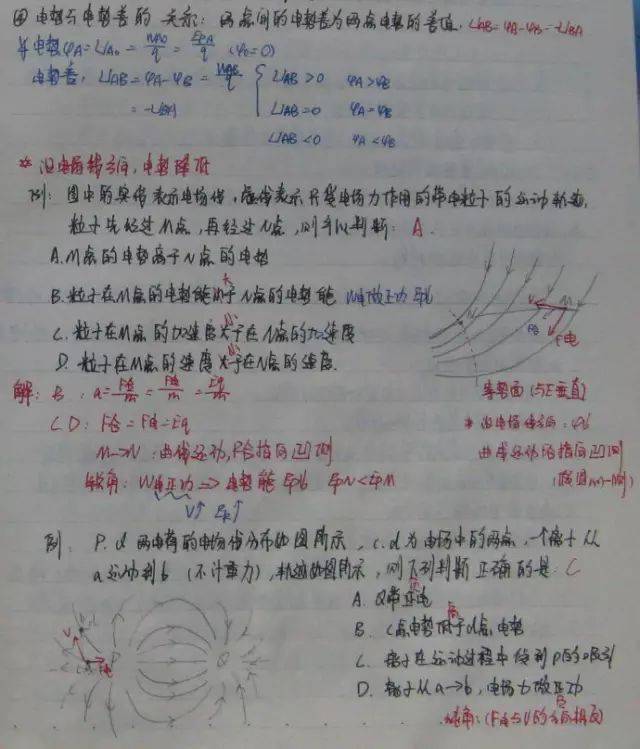 ④ 电势与电势差的关系：两点间的电势差为两点电势的差值. UAB=φA-φB=-UBA
φA=UAo=WAO/q=EPA/q (φo=0)
电势差：UAB=φA-φB=WAB/q { UAB>0 φA>φB
=-UBA UAB=0 φA=φB
UAB<0 φA<φB
* 沿电场线方向，电势降低
例：图中的实线表示电场线，虚线表示只受电场力作用的带电粒子的运动轨迹,
粒子先经过M点，再经过N点，则可以判断：A.
A. M点的电势高于N点的电势
B. 粒子在M点的电势能小于N点的电势能 W电做正功
大
C. 粒子在M点的加速度大于在N点的加速度
小
D. 粒子在M点的速度大于在N点的速度.
小
V N M
F合 F电
解：B：a=F合/m=F电/m=Eq/m
等势面(与E垂直)
CD：F合=F电=Eq
* 沿电场线方向：φ↓
M→N：曲线运动，F合指向凹侧
曲线运动 F合指向凹侧
锐角：W电正功 => 电势能EP↓ EPN<EPM
V↑ Ek↑
例：P.Q两电荷的电场线分布如图所示，c.d为电场中的两点，一个离子从
a运动到b (不计重力)，轨迹如图所示，则下列判断正确的是：C
A. Q带正电
负
B. c点电势低于d点电势
高
C. 离子在运动过程中受到P的吸引
D. 离子从a→b，电场力做正功
负
P Q
钝角：(F电与V的方向相反)